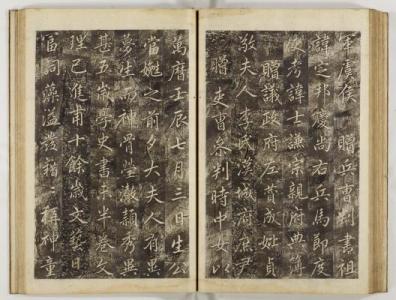 軍虞侯 贈兵曹判書祖
諱定邦慶尚右兵馬節度
使考諱士謙宗親府典簿
贈議政府左贊成妣貞
敬夫人李氏漢城府庶尹
贈吏曹參判時中女以
萬曆壬辰七月三日生公
當娩之前夕大夫人有異
夢生而神骨瑩澈穎秀異
甚五歲學史書未半卷文
理已進甫十餘歲文藝日
富同藻溢發稱之神童